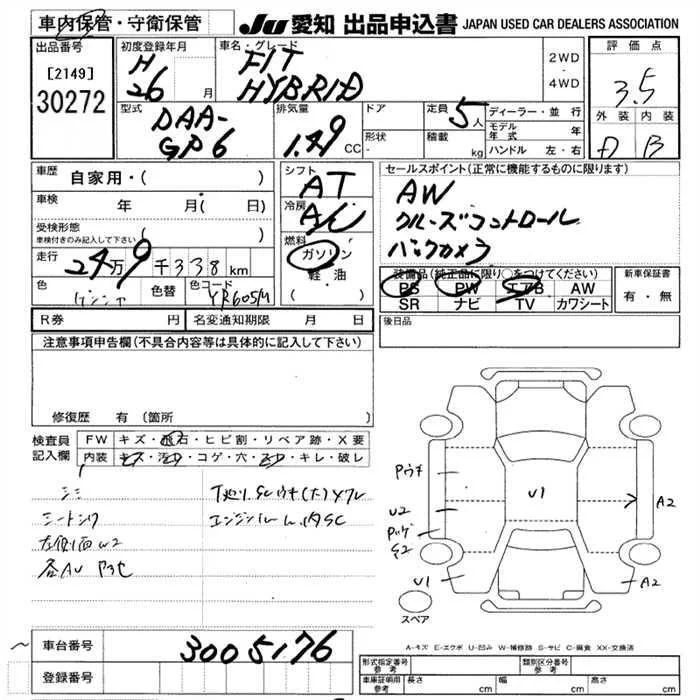 車内保管・守衛保管
JU 愛知 出品申込書 JAPAN USED CAR DEALERS ASSOCIATION
出品番号
[2149]
30272
初度登録年月
H
26
月
車名・グレード
FIT
HYBRID
2WD
・
4WD
評価点
3.5
外装 内装
D B
型式
DAA-
GP6
排気量
1.49
CC
ドア
形状
-
定員
5人
積載
kg
ディーラー・並行
モデル年式 年
ハンドル 左・右
車歴
自家用・( )
車検 年 月( 日)
受検形態
車検付きのみ記入して下さい
( )
走行
24万9千338km
色
色替
色コード
YR605M
シフト
AT
冷房
A/C
燃料
ガソリン
・
軽油
セールスポイント(正常に機能するものに限ります)
AW
クルーズコントロール
バックカメラ
装備品(純正品に限り○をつけてください)
PS PW エアB AW
SR ナビ TV カワシート
新車保証書
有・無
R券 円 名変通知期限 月 日
後日品
注意事項申告欄(不具合内容等は具体的に記入して下さい)
修復歴 有(箇所
検査員
記入欄
FW キズ・飛石・ヒビ割・リペア跡・X要
内装 キズ・汚れ・コゲ・穴・スレ・キレ・破レ
シミ
シートシワ
左側面W2
エンジンルーム内SC
Pウチ
U2
U1
A2
U1
A2
スペア
A-キズ E-エクボ U-凹み W-補修跡 S-サビ C-腐食 XX-交換済
車台番号
3005176
登録番号
形式指定番号
参考
類別区分番号
参考
車庫証明用
参考
長さ cm 幅 cm 高さ cm